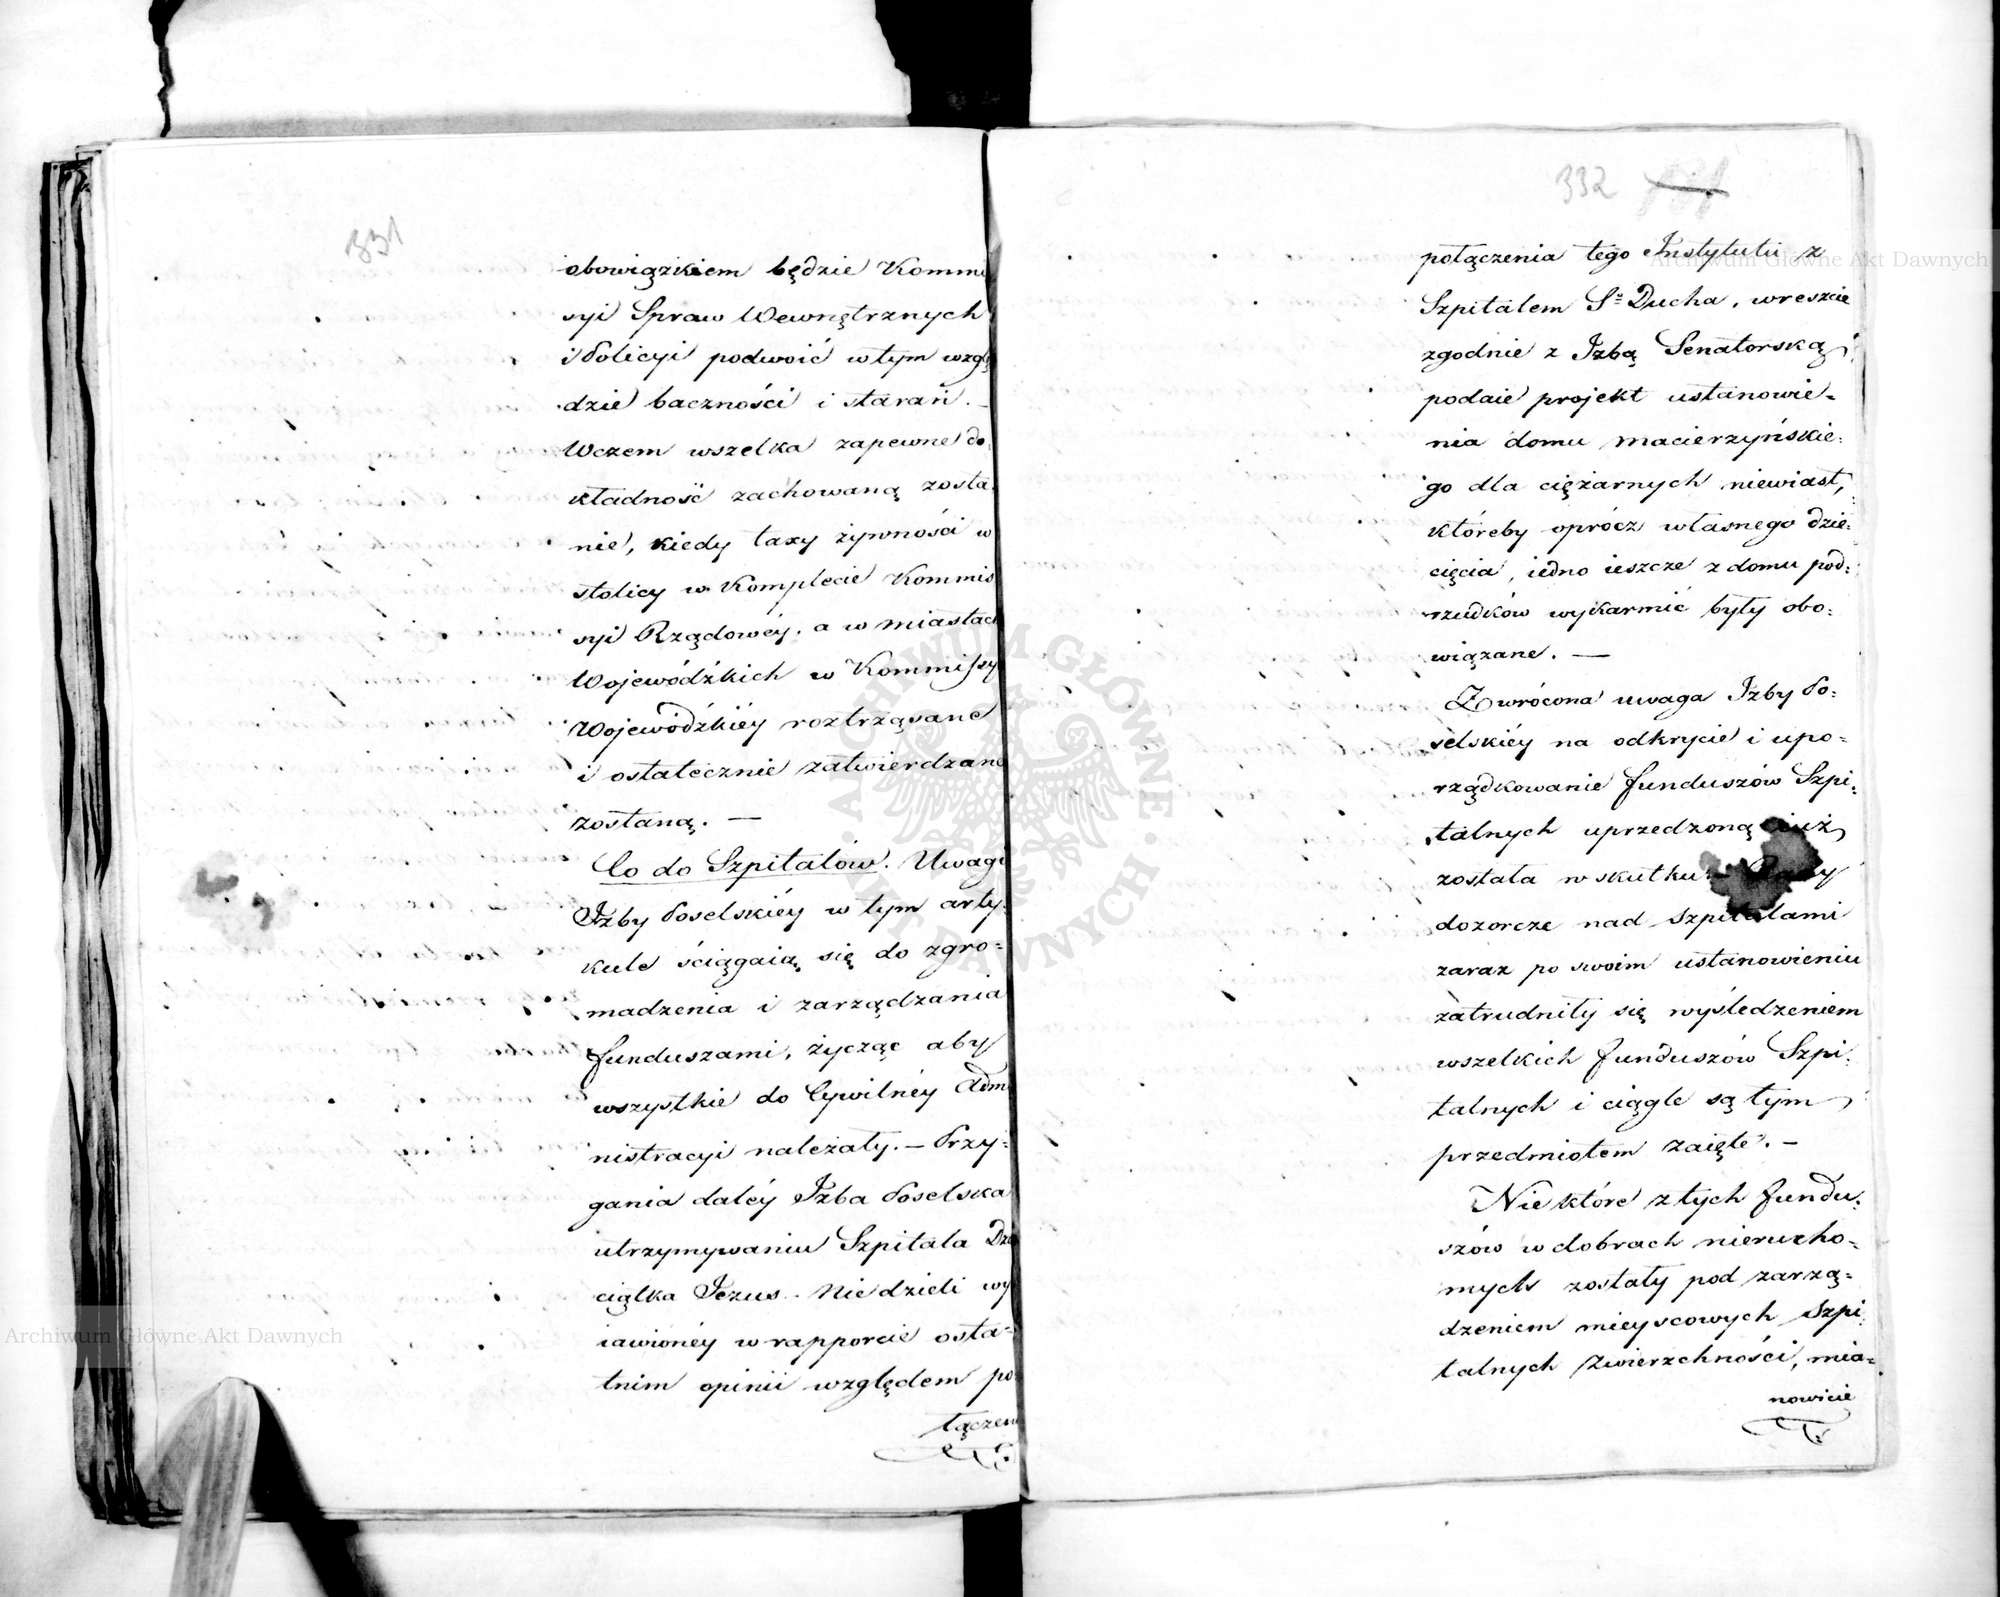 331
obowiązkiem będzie Kommi
syi Spraw Wewnętrznych
i Policyi podwoić w tym wzglę
dzie baczności i starań. —
W czem wszelka zapewne do
kładność zachowaną zosta
nie, kiedy taxy żywności w
stolicy w Komplecie Kommis
syi Rządowéy, a w miastach
Wojewódzkich w Kommissy
Wojewódzkiéy roztrząsane
i ostatecznie zatwierdzane
zostaną. —
Co do Szpitalów. Uwagi
Izby Poselskiéy w tym arty
kule ściągaią się do zgro=
madzenia i zarządzania
funduszami, życząc aby
wszystkie do Cywilnéy Admi
nistracyi należały. — Przy=
gania daléy Izba Poselska
utrzymywaniu Szpitala Dzie
ciątka Jezus. Nie dzieli wy
iawionéy w rapporcie osta=
tnim opinii względem po=
łączen
332
połączenia tego Instytutu z
Szpitalem S<sup>o</sup> Ducha, wreszcie
zgodnie z Izbą Senatorską
podaie projekt ustanowie=
nia domu macierzyńskie=
go dla ciężarnych niewiast,
któreby oprócz własnego dzie=
cięcia, iedno ieszcze z domu pod=
rzudków wykarmić były obo=
wiązane. —
Zwrócona uwaga Izby Po=
selskiéy na odkrycie i upo=
rządkowanie funduszów Szpi=
talnych uprzedzoną iuż
została w skutku Rady
dozorcze nad Szpitalami
zaraz po swoim ustanowieniu
zatrudniły się wyśledzeniem
wszelkich funduszów Szpi=
talnych i ciągle są tym
przedmiotem zaięte. —
Nie które z tych fundu=
szów w dobrach nierucho=
mych zostały pod zarzą=
dzeniem mieyscowych Szpi=
talnych Zwierzchności, mia=
nowicie
Archiwum Główne Akt Dawnych
Archiwum Główne Akt Dawnych
ARCHIWUM GŁÓWNE AKT DAWNYCH